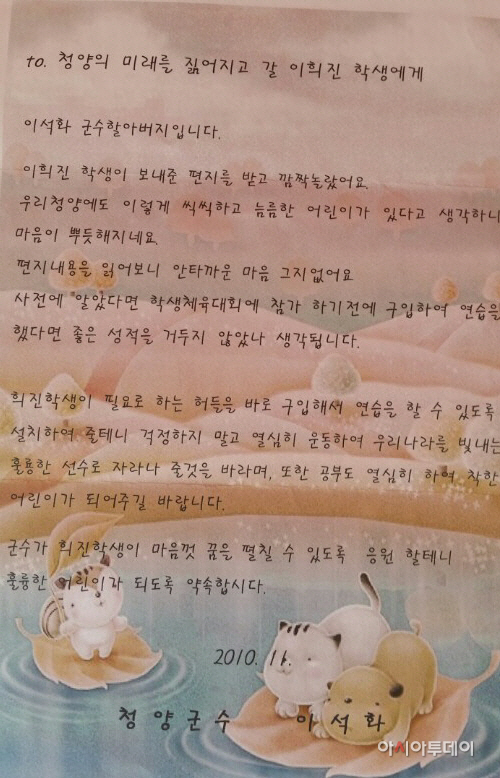 to. 청양의 미래를 짊어지고 갈 이희진 학생에게
이석화 군수할아버지입니다.
이희진 학생이 보내준 편지를 받고 깜짝놀랐어요.
우리청양에도 이렇게 씩씩하고 늠름한 어린이가 있다고 생각하니
마음이 뿌듯해지네요.
편지내용을 읽어보니 안타까운 마음 그지없어요
사전에 알았다면 학생체육대회에 참가 하기전에 구입하여 연습을
했다면 좋은 성적을 거두지 않았나 생각됩니다.
희진학생이 필요로 하는 허들을 바로 구입해서 연습을 할 수 있도록
설치하여 줄테니 걱정하지 말고 열심히 운동하여 우리나라를 빛내는
훌륭한 선수로 자라나 줄것을 바라며, 또한 공부도 열심히 하여 착한
어린이가 되어주길 바랍니다.
군수가 희진학생이 마음껏 꿈을 펼칠 수 있도록 응원 할테니
훌륭한 어린이가 되도록 약속합시다.
2010. 11.
청양군수 이석화
아시아투데이